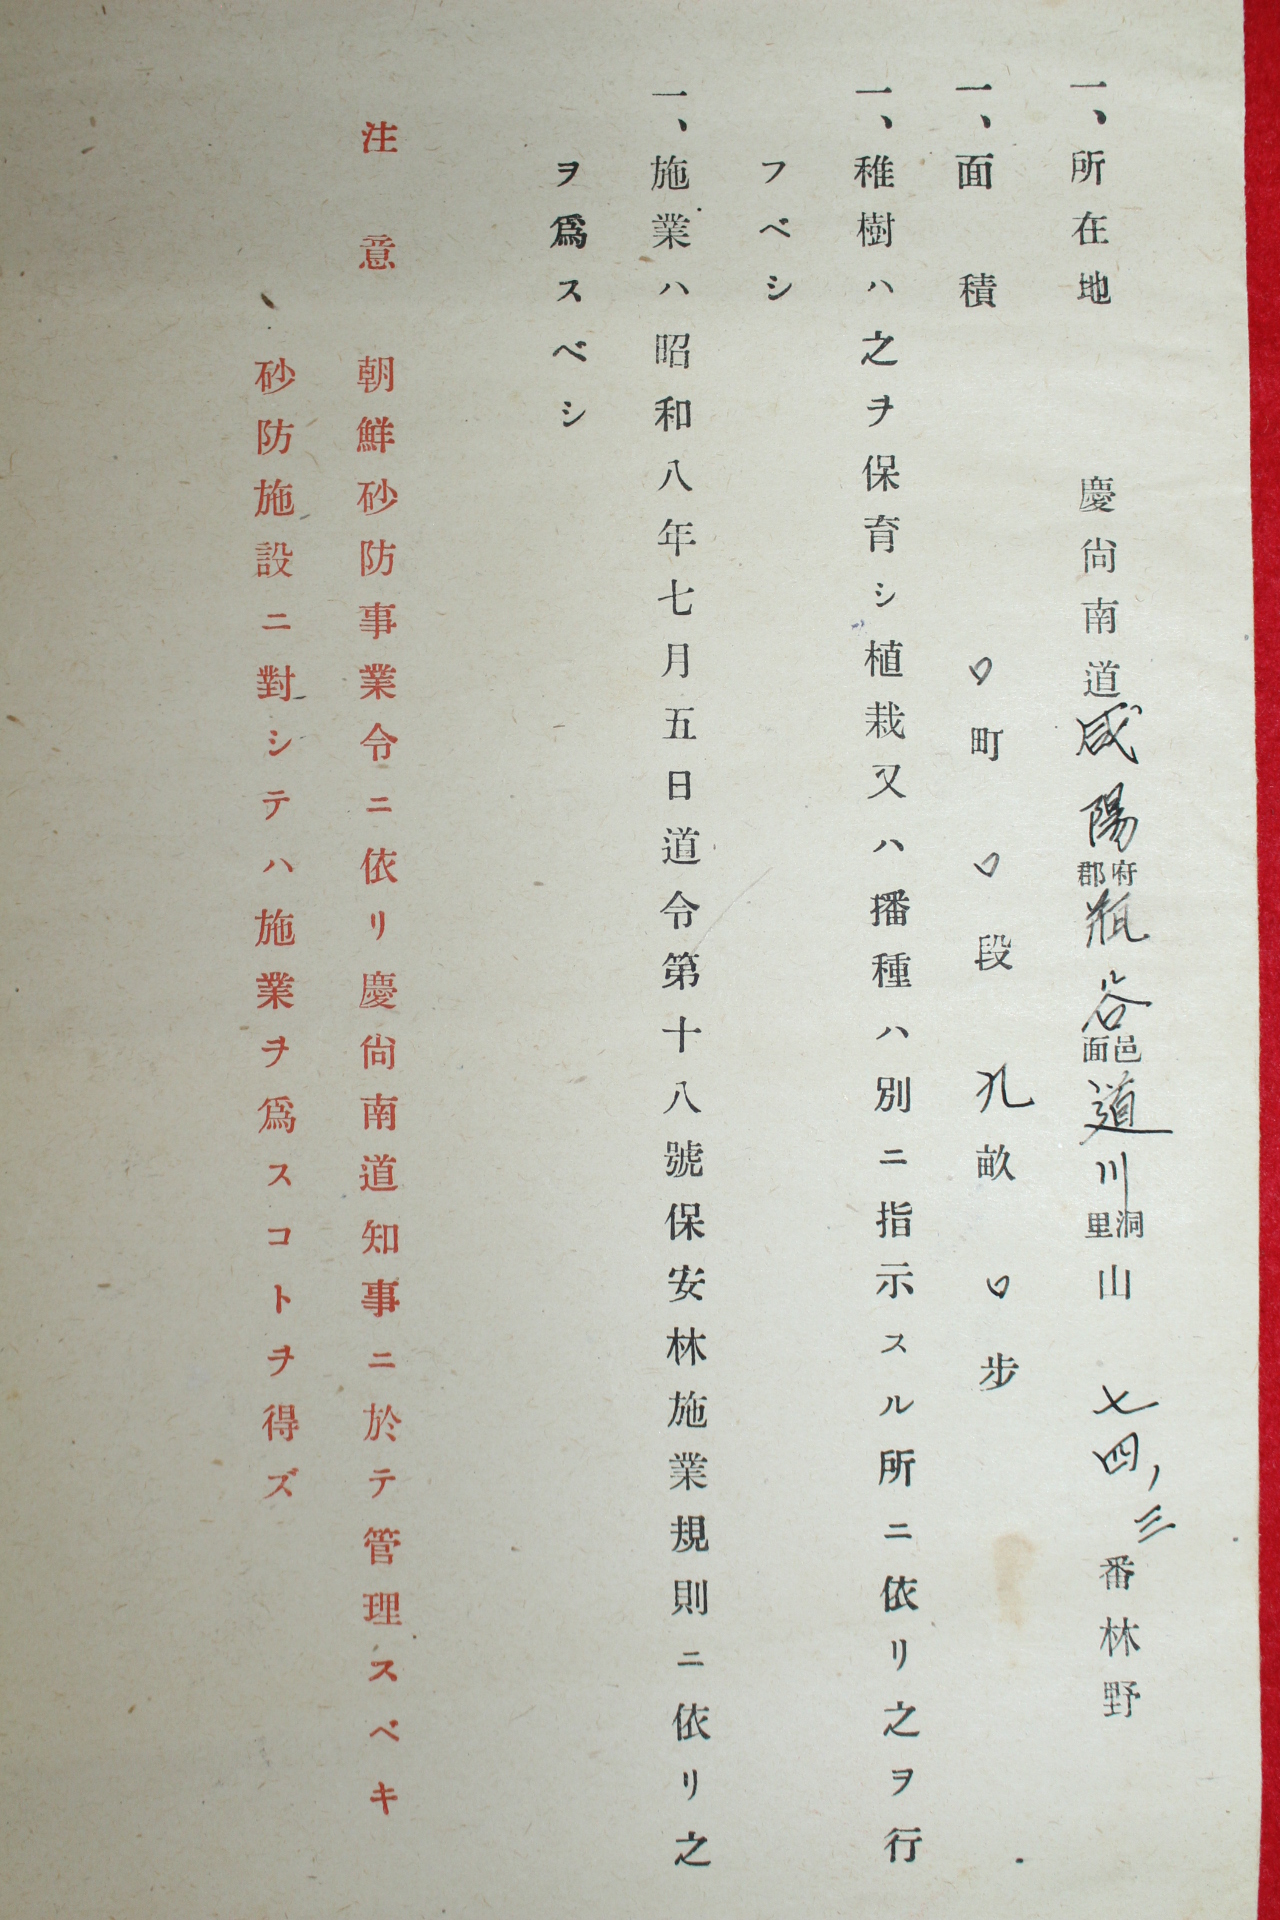 一、所在地　慶尙南道咸陽府郡瓶谷邑面道川洞里山七四、三番林野
一、面積　〇町〇段九畝〇步
一、稚樹ハ之ヲ保育シ植栽又ハ播種ハ別ニ指示スル所ニ依リ之ヲ行
フベシ
一、施業ハ昭和八年七月五日道令第十八號保安林施業規則ニ依リ之
ヲ爲スベシ
注意　朝鮮砂防事業令ニ依リ慶尙南道知事ニ於テ管理スベキ
砂防施設ニ對シテハ施業ヲ爲スコトヲ得ズ